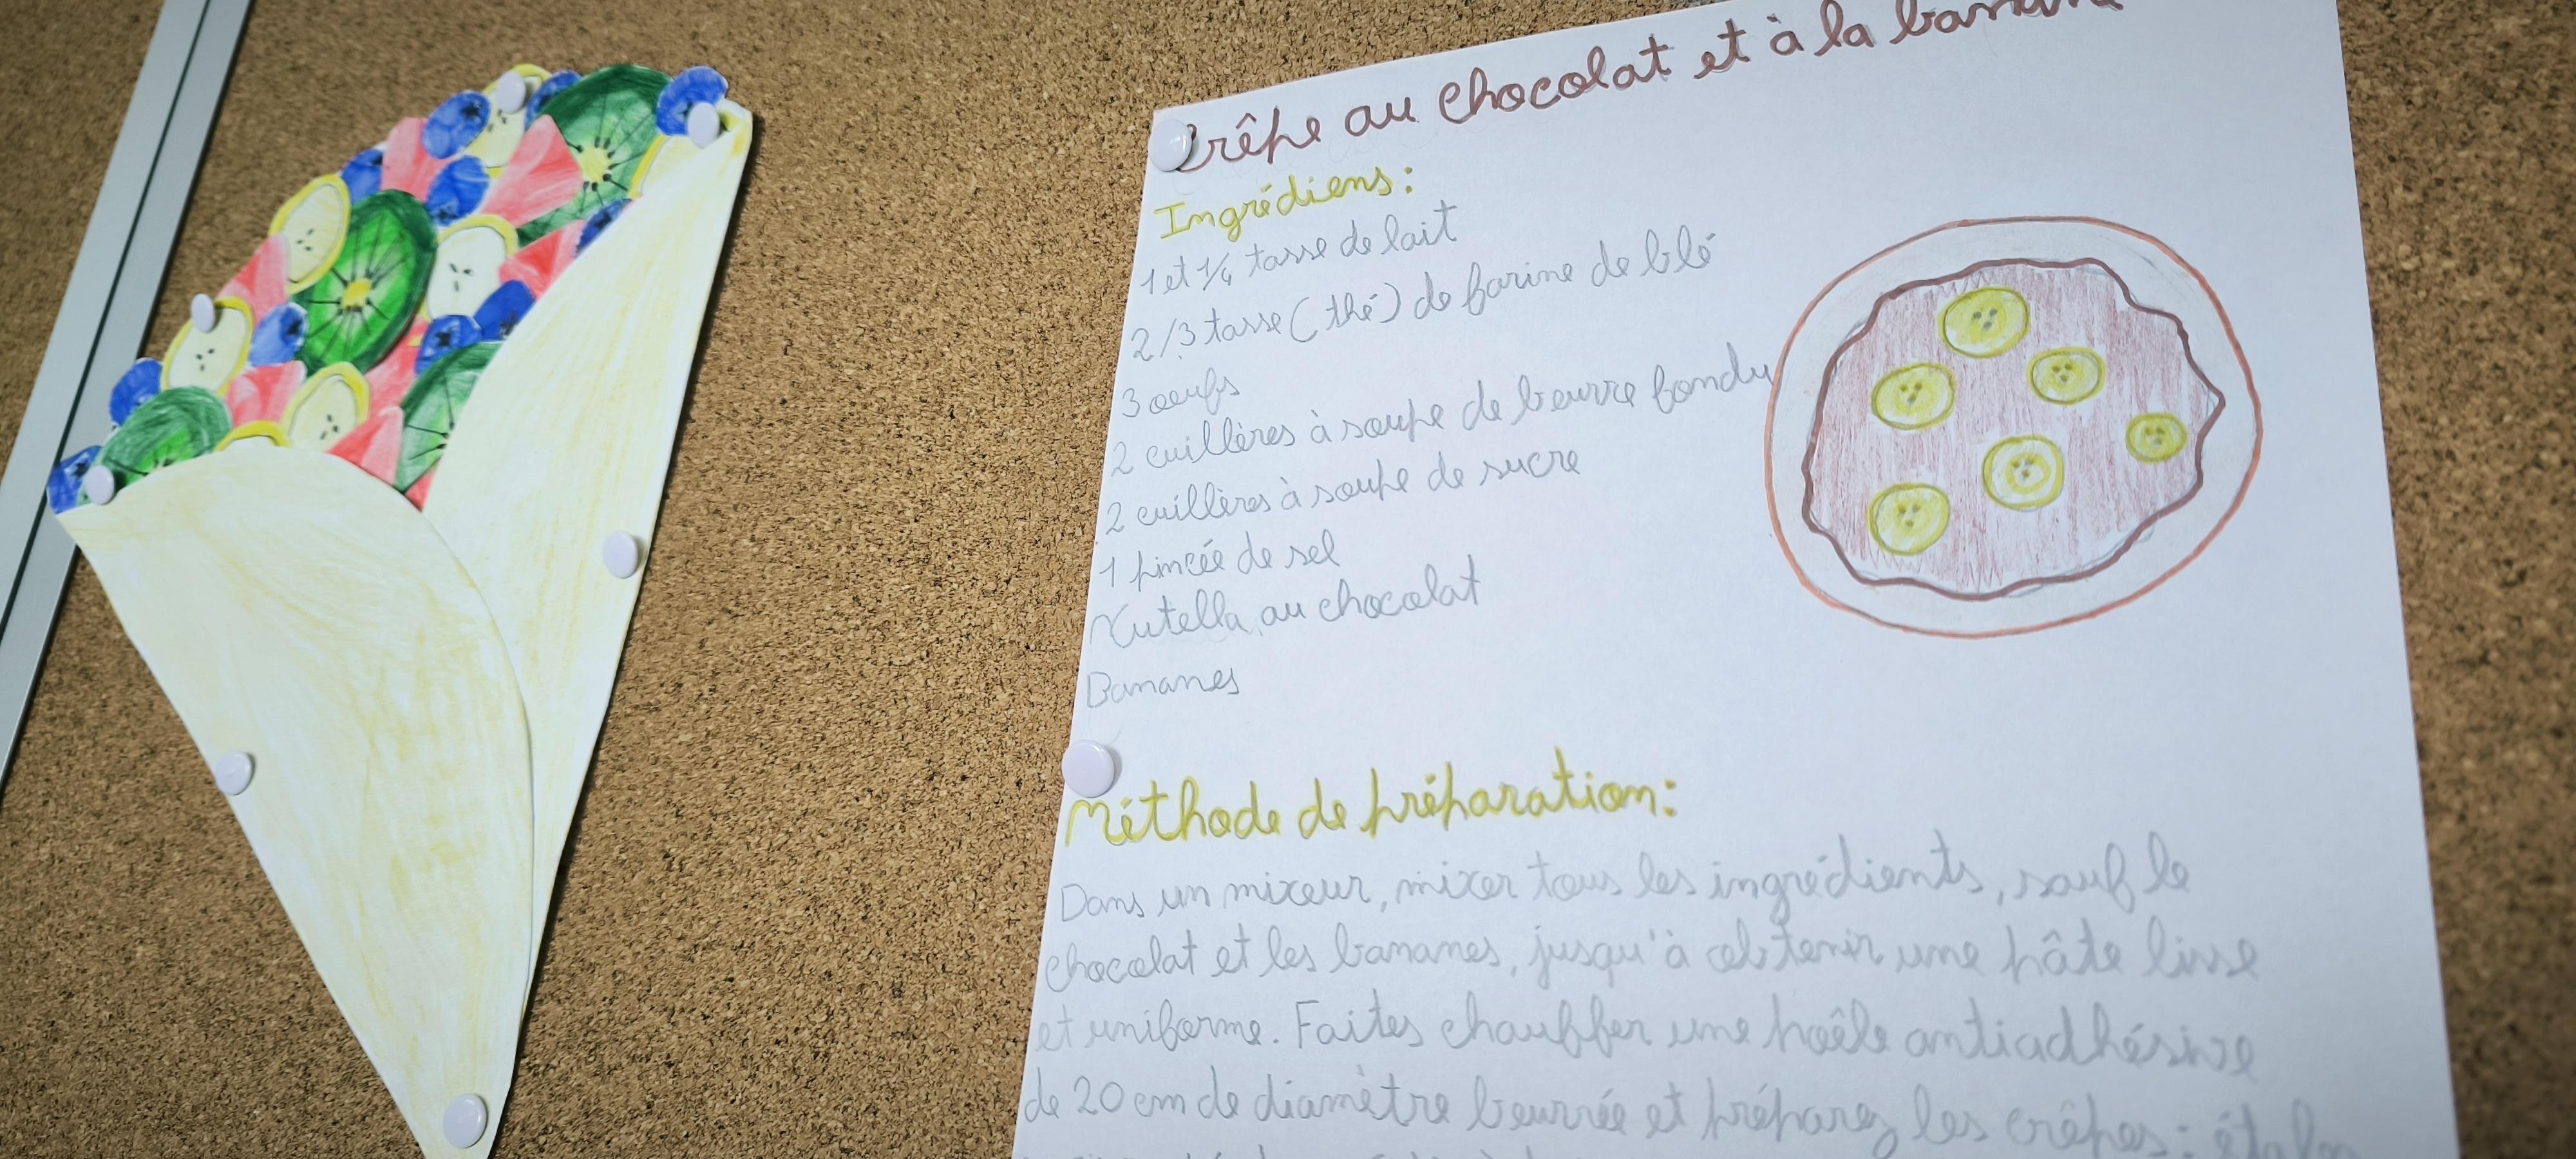 Crêpe au chocolat et à la banan
Ingrédiens:
1 et 1/4 tasse de lait
2/3 tasse (thé) de farine de blé
3 oeufs
2 cuillères à soupe de beurre fondu
2 cuillères à soupe de sucre
1 pincée de sel
Nutella au chocolat
Bananes
Méthode de préparation:
Dans un mixeur, mixer tous les ingrédients, sauf le
chocolat et les bananes, jusqu'à obtenir une pâte lisse
et uniforme. Faites chauffer une poêle antiadhésive
de 20 cm de diamètre beurrée et préparez les crêpes: étalez